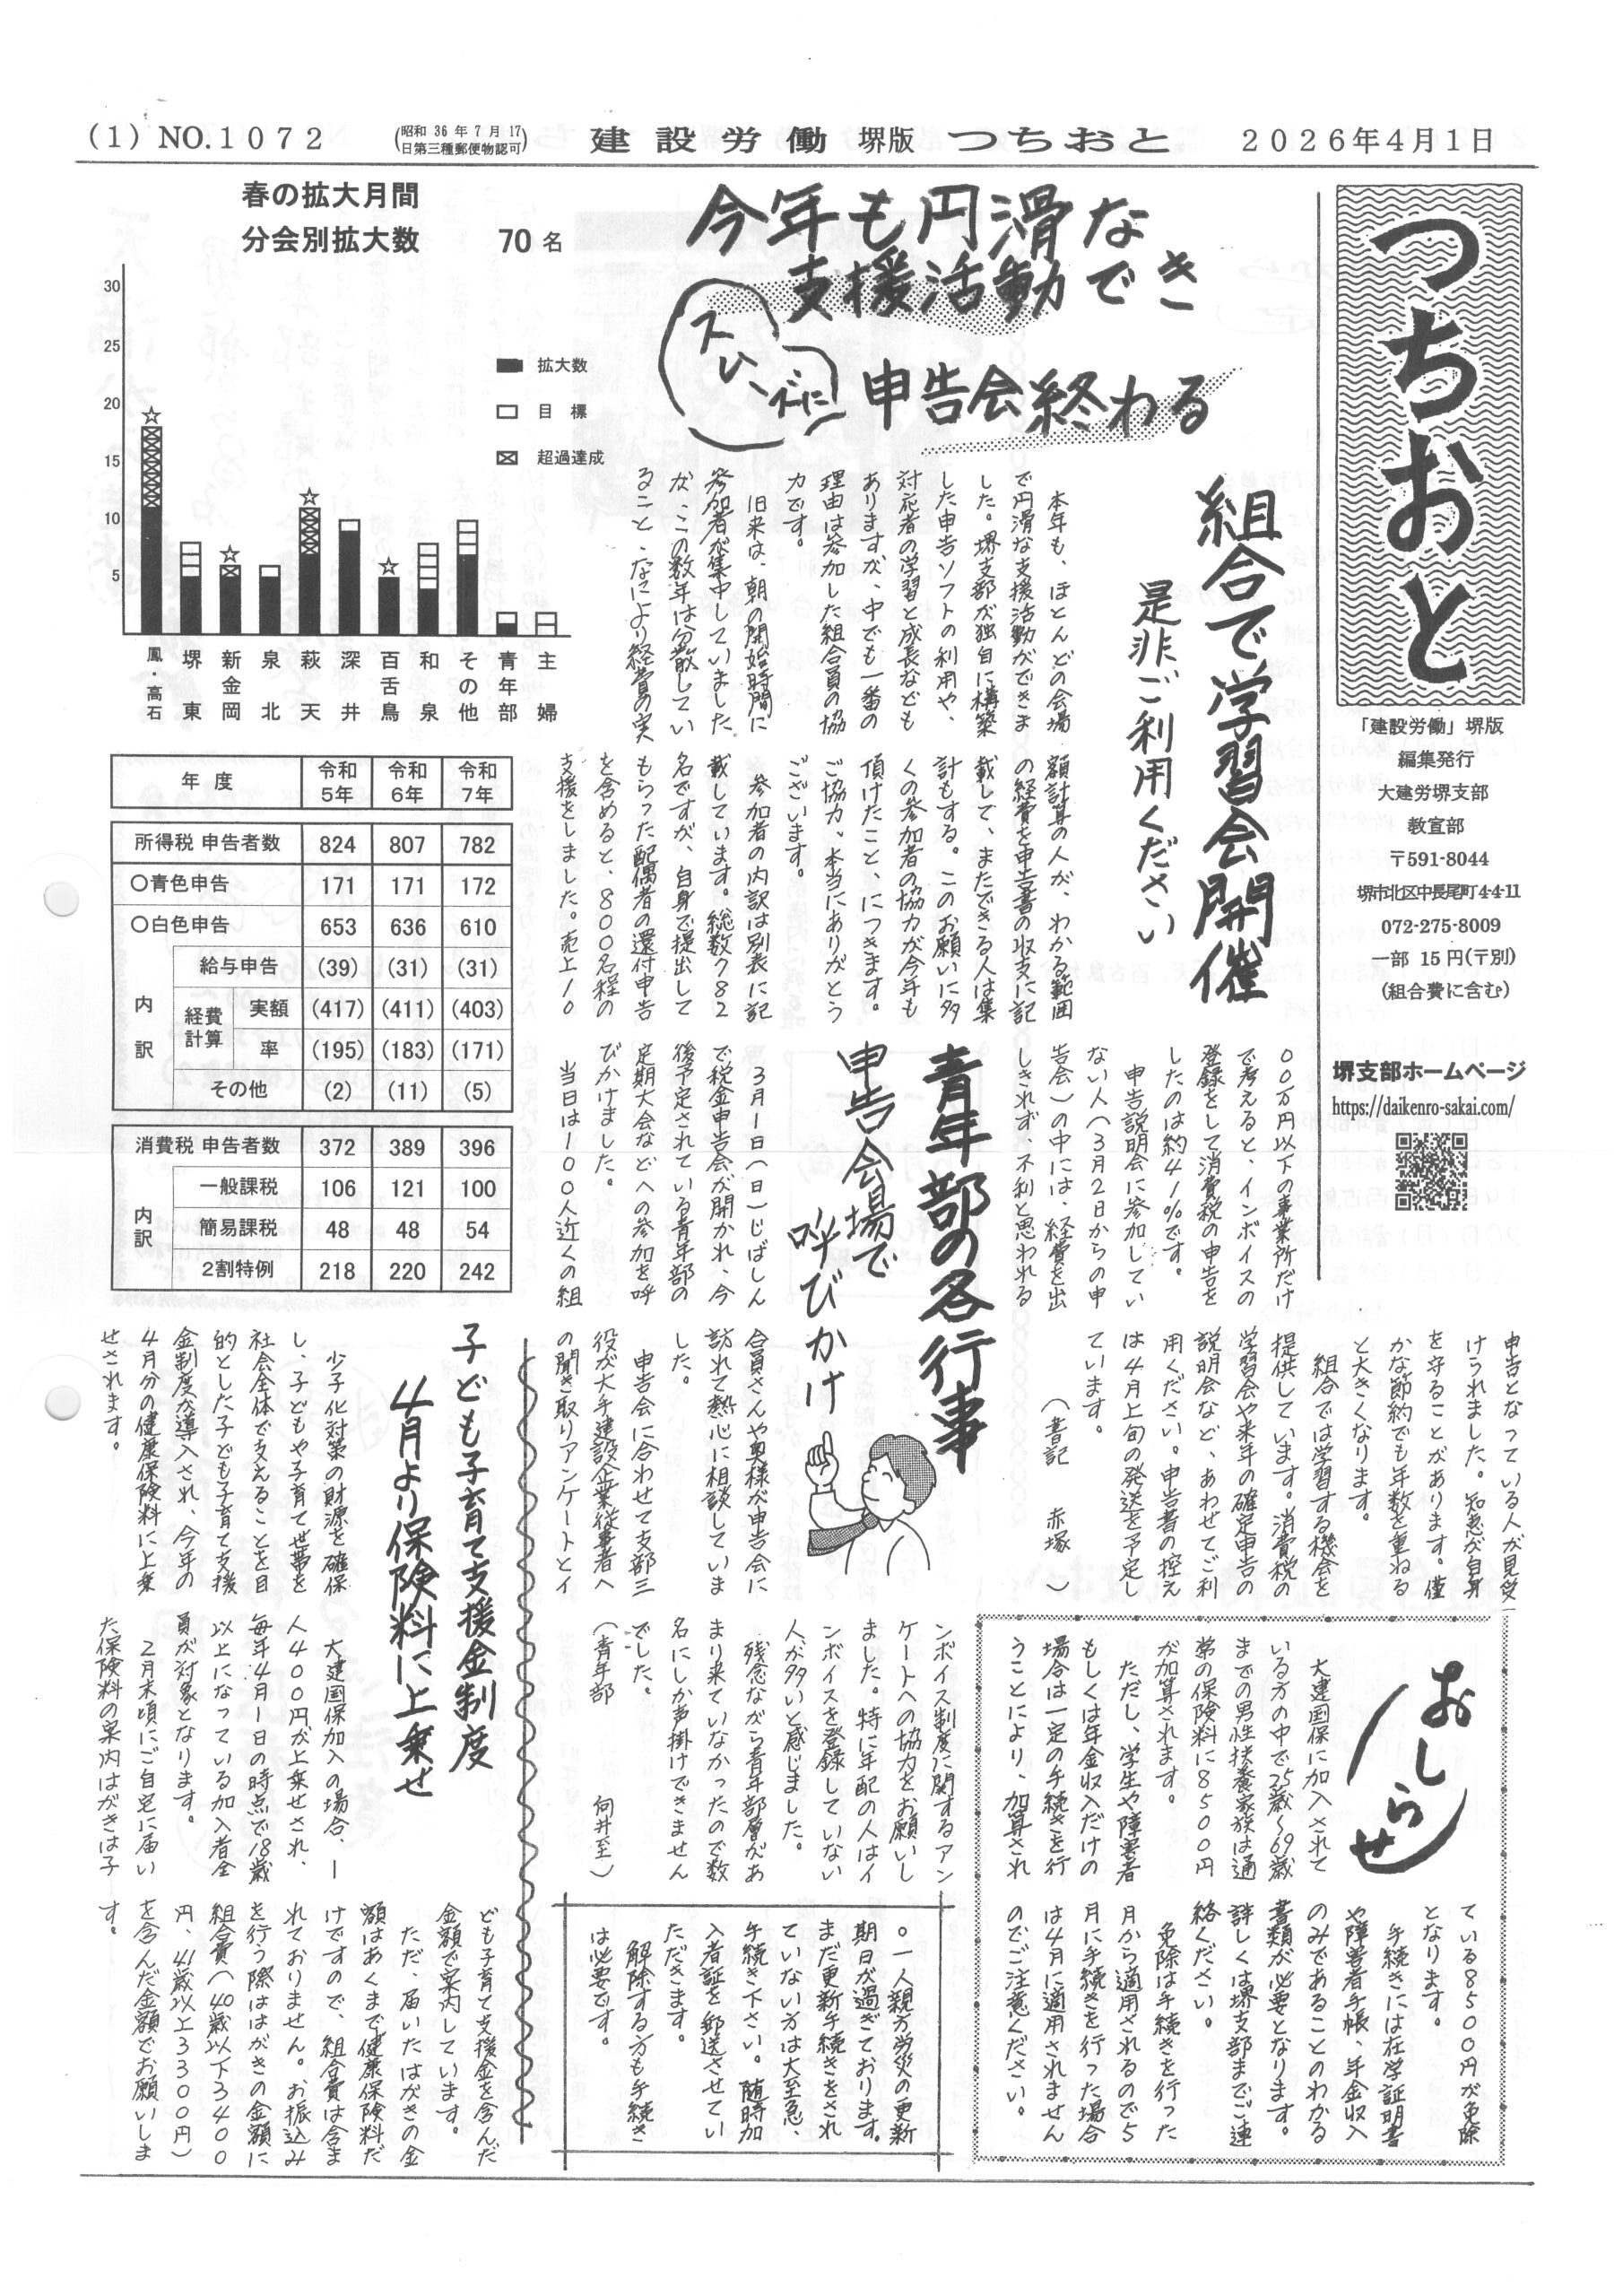 (1) NO.1072
(昭和36年7月17日第三種郵便物認可)
建設労働 堺版 つちおと
2026年4月1日
つちおと
「建設労働」堺版
編集発行
大建労堺支部
教宣部
〒591-8044
堺市北区中長尾町4-4-11
072-275-8009
一部 15円(〒別)
(組合費に含む)
堺支部ホームページ
https://daikenro-sakai.com/
今年も円滑な
支援活動でき
スムーズに
申告会終わる
組合で学習会開催
是非ご利用ください
本年も、ほとんどの会場
で円滑な支援活動ができま
した。堺支部が独自に構築
した申告ソフトの利用や、
対応者の学習と成長なども
ありますが、中でも一番の
理由は参加した組合員の協
力です。
旧来は、朝の開始時間に
参加者が集中していました
が、この数年は分散してい
ること、なにより経費の実
額計算の人が、わかる範囲
の経費を申告書の収支に記
載して、またできる人は集
計もする。このお願いに多
くの参加者の協力が今年も
頂けたこと、につきます。
ご協力、本当にありがとう
ございます。
参加者の内訳は別表に記
載しています。総数782
名ですが、自身で提出して
もらった配偶者の還付申告
を含めると、800名程の
支援をしました。売上10
00万円以下の事業所だけ
で考えると、インボイスの
登録をして消費税の申告を
したのは約41%です。
申告説明会に参加してい
ない人(3月2日からの申
告会)の中には、経費を出
しきれず、不利と思われる
申告となっている人が見受
けられました。知恵が自身
を守ることがあります。僅
かな節約でも年数を重ねる
と大きくなります。
組合では学習する機会を
提供しています。消費税の
学習会や来年の確定申告の
説明会など、あわせてご利
用ください。申告書の控え
は4月上旬の発送を予定し
ています。
(書記 赤塚)
春の拡大月間
分会別拡大数 70名
30
25
20
15
10
5
拡大数
目標
超過達成
鳳・高石
堺東
新金岡
泉北
萩天
深井
百舌鳥
和泉
その他
青年部
主婦
年度 令和5年 令和6年 令和7年
所得税 申告者数 824 807 782
○青色申告 171 171 172
○白色申告 653 636 610
内訳
給与申告 (39) (31) (31)
経費計算 実額 (417) (411) (403)
率 (195) (183) (171)
その他 (2) (11) (5)
消費税 申告者数 372 389 396
内訳
一般課税 106 121 100
簡易課税 48 48 54
2割特例 218 220 242
青年部の各行事
申告会場で
呼びかけ
3月1日(日)じばしん
で税金申告会が開かれ、今
後予定されている青年部の
定期大会などへの参加を呼
びかけました。
当日は100人近くの組
合員さんや奥様が申告会に
訪れて熱心に相談していま
した。
申告会に合わせて支部三
役が大手建設企業従事者へ
の聞き取りアンケートとイ
ンボイス制度に関するアン
ケートへの協力をお願いし
ました。特に年配の人はイ
ンボイスを登録していない
人が多いと感じました。
残念ながら青年部層があ
まり来ていなかったので数
名にしか声掛けできません
でした。
(青年部 向井至)
子ども子育て支援金制度
4月より保険料に上乗せ
少子化対策の財源を確保
し、子どもや子育て世帯を
社会全体で支えることを目
的とした子ども子育て支援
金制度が導入され、今年の
4月分の健康保険料に上乗
せされます。
大建国保加入の場合、一
人400円が上乗せされ、
毎年4月1日の時点で18歳
以上になっている加入者全
員が対象となります。
2月末頃にご自宅に届い
た保険料の案内はがきは子
ども子育て支援金を含んだ
金額で案内しています。
ただ、届いたはがきの金
額はあくまで健康保険料だ
けですので、組合費は含ま
れておりません。お振込み
を行う際ははがきの金額に
組合費(40歳以下3400
円、41歳以上3300円)
を含んだ金額でお願いしま
す。
おしらせ
大建国保に加入されて
いる方の中で25歳~69歳
までの男性扶養家族は通
常の保険料に8500円
が加算されます。
ただし、学生や障害者
もしくは年金収入だけの
場合は一定の手続きを行
うことにより、加算され
ている8500円が免除
となります。
手続きには在学証明書
や障害者手帳、年金収入
のみであることのわかる
書類が必要となります。
詳しくは堺支部までご連
絡ください。
免除は手続きを行った
月から適用されるので5
月に手続きを行った場合
は4月に適用されません
のでご注意ください。
○一人親方労災の更新
期日が過ぎております。
まだ更新手続きをされ
ていない方は大至急、
手続き下さい。随時加
入者証を郵送させてい
ただきます。
解除する方も手続き
は必要です。